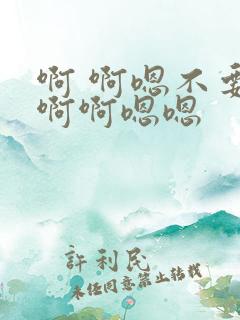 啊 啊嗯不要
啊啊嗯嗯
許利民
未经同意禁止转载